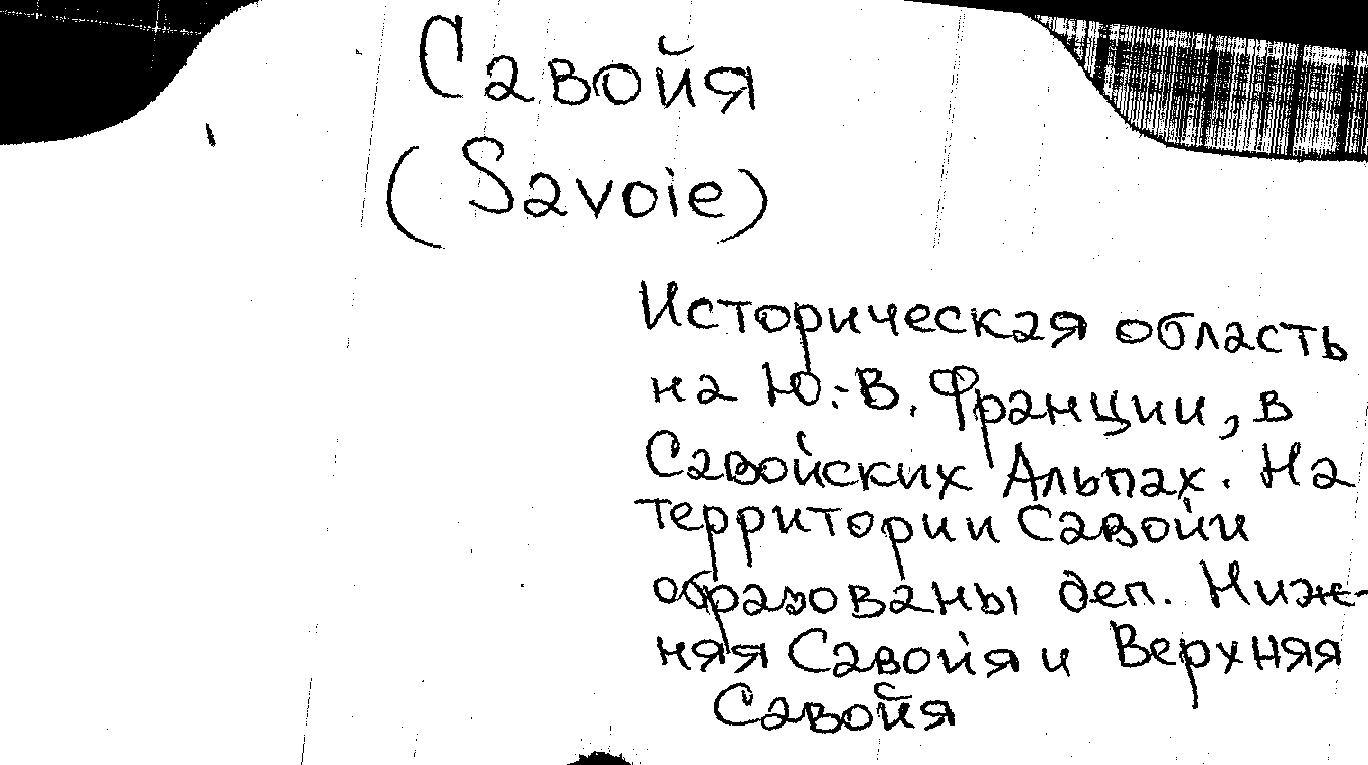 Савойя
(Savoie)
Историческая область
на Ю.-В. Франции, в
Савойских Альпах. На
территории Савойи
образованы деп. Ниж-
няя Савойя и Верхняя
Савойя